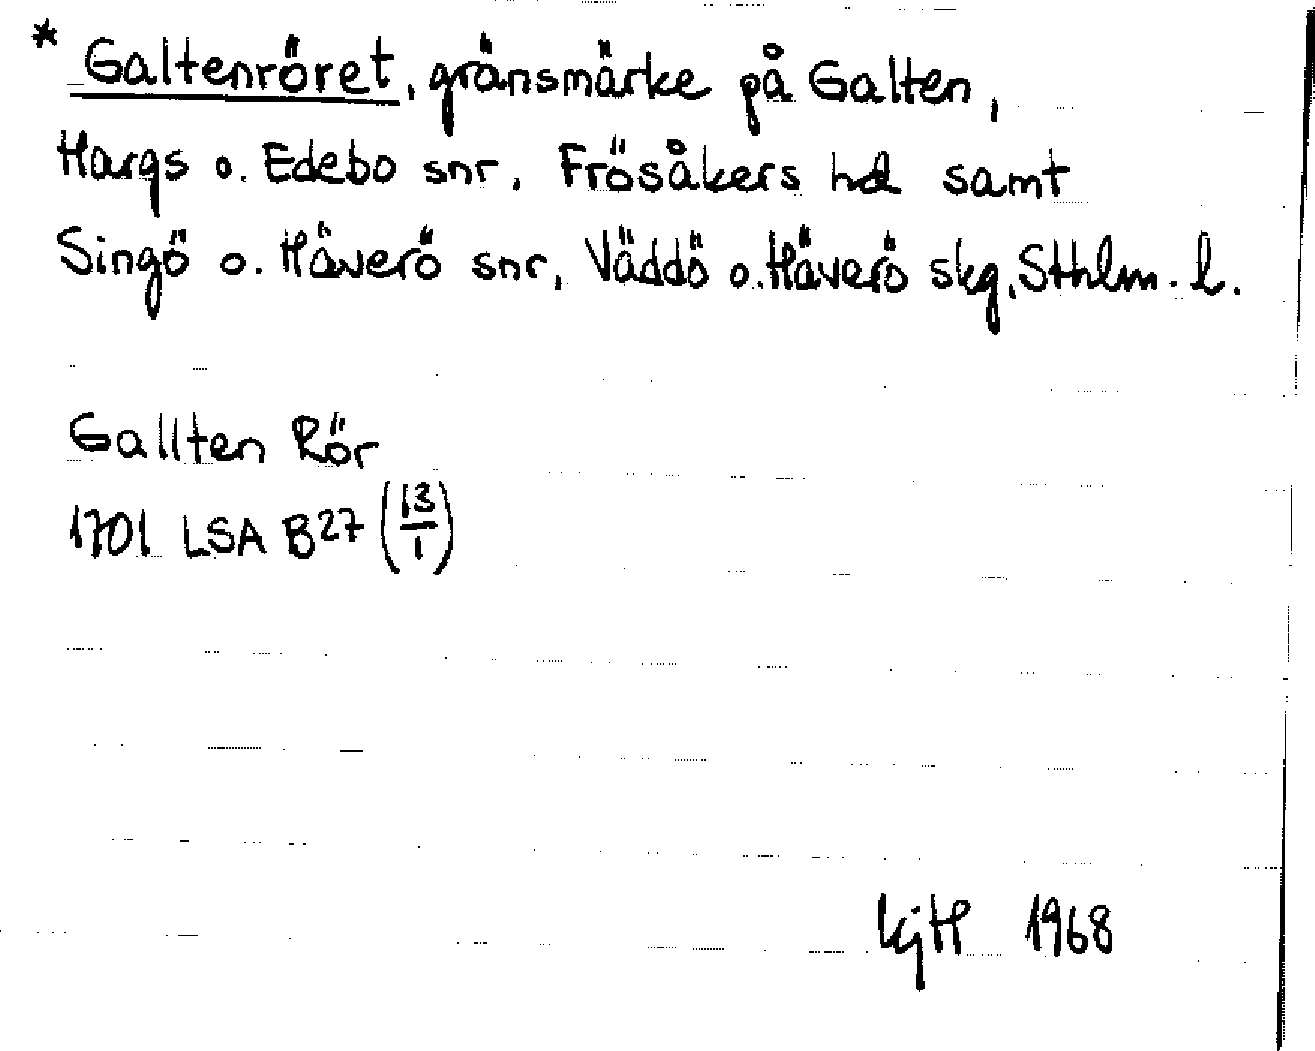 * Galtenröret, gränsmärke på Galten,
Hargs o. Edebo snr, Frösåkers hd samt
Singö o. Häverö snr, Väddö o. Häverö skg, Sthlm. l.
Gallten Rör
1701 LSA B27 (13/1)
KjH 1968